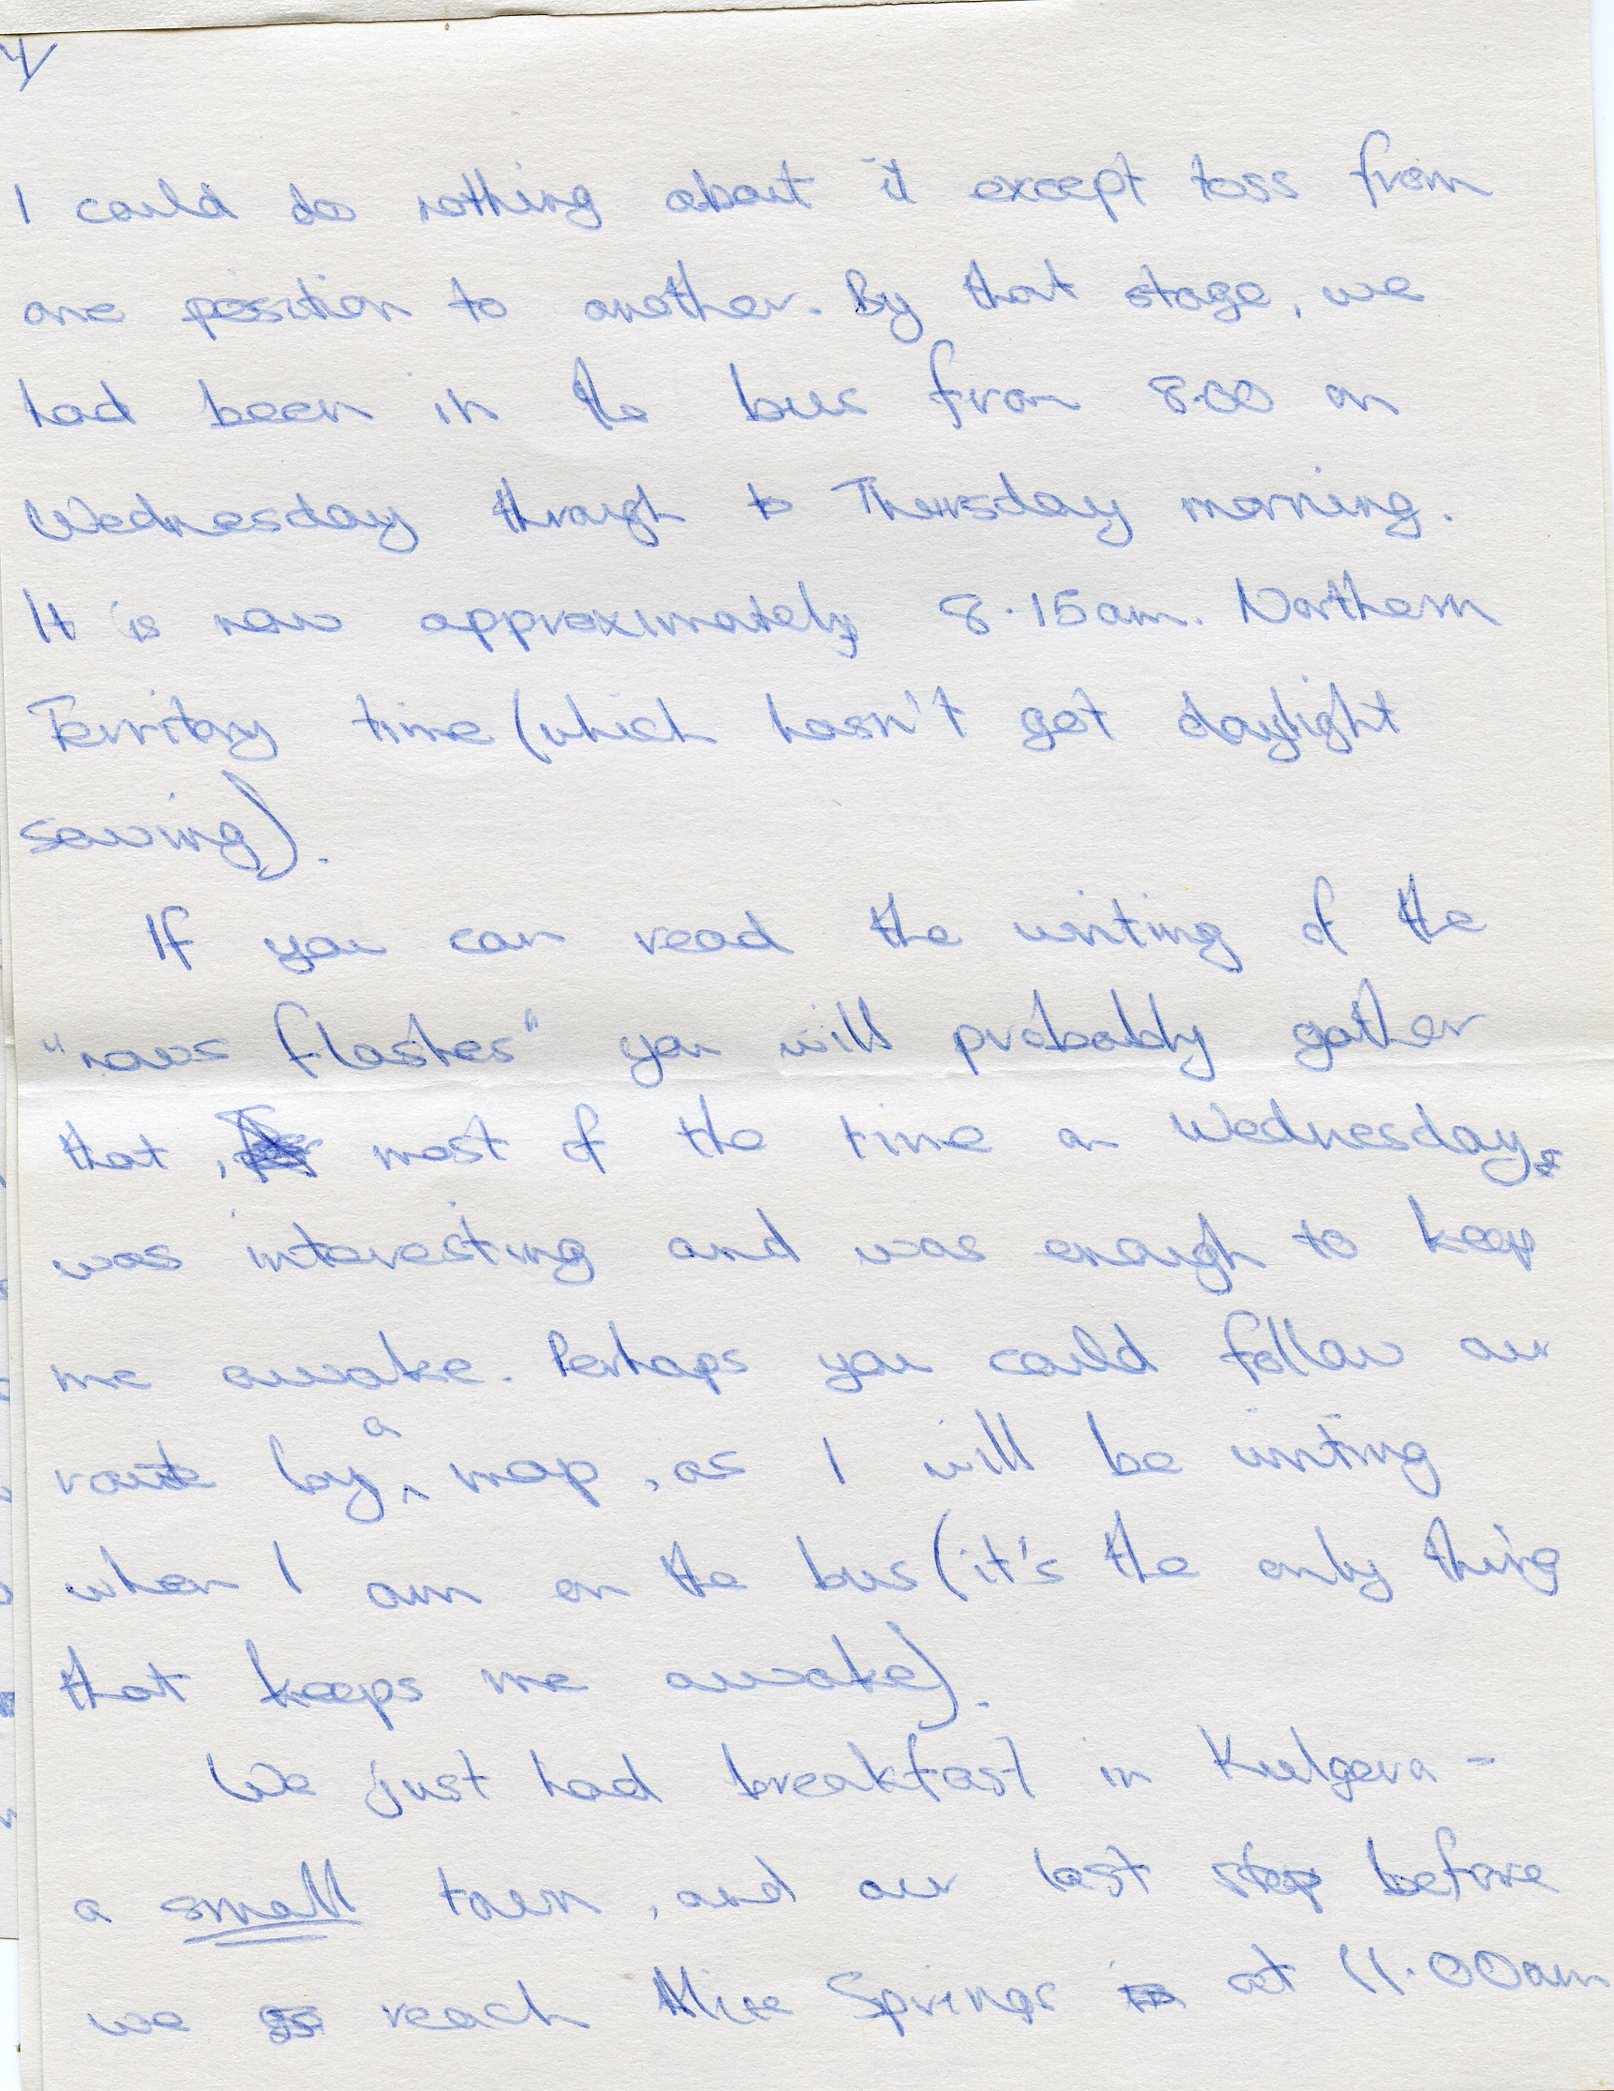 4/
I could do nothing about it except toss from
one position to another. By that stage, we
had been in the bus from 8.00 on
Wednesday through to Thursday morning.
It is now approximately 8.15am. Northern
Territory time (which hasn't got daylight
saving).
If you can read the writing of the
"news flashes" you will probably gather
that, most of the time on Wednesday
was interesting and was enough to keep
me awake. Perhaps you could follow our
route by a map, as I will be writing
when I am on the bus (it's the only thing
that keeps me awake).
We just had breakfast in Kulgera -
a small town, and our last stop before
we reach Alice Springs at 11.00am